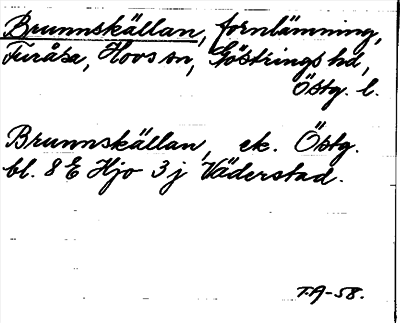 Brunnskällan, fornlämning,
Furåsa, Hovs sn, Göstrings hd,
Östg. l.
Brunnskällan, ek. Östg.
bl. 8 E Hjo 3 j Väderstad.
T.A-58.